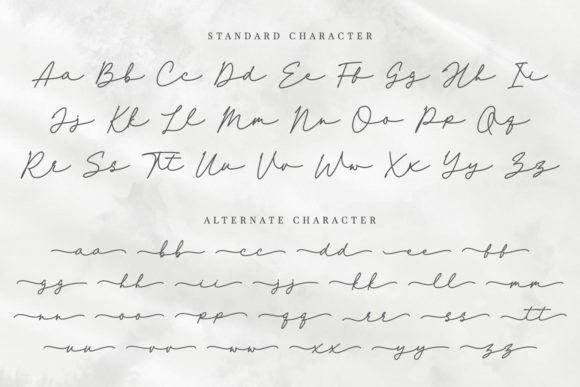 STANDARD CHARACTER
Aa Bb Cc Dd Ee Ff Gg Hh Ii
Jj Kk Ll Mm Nn Oo Pp Qq
Rr Ss Tt Uu Vv Ww Xx Yy Zz
ALTERNATE CHARACTER
aa bb cc dd ee ff
gg hh ii jj kk ll mm
nn oo pp qq rr ss tt
uu vv ww xx yy zz